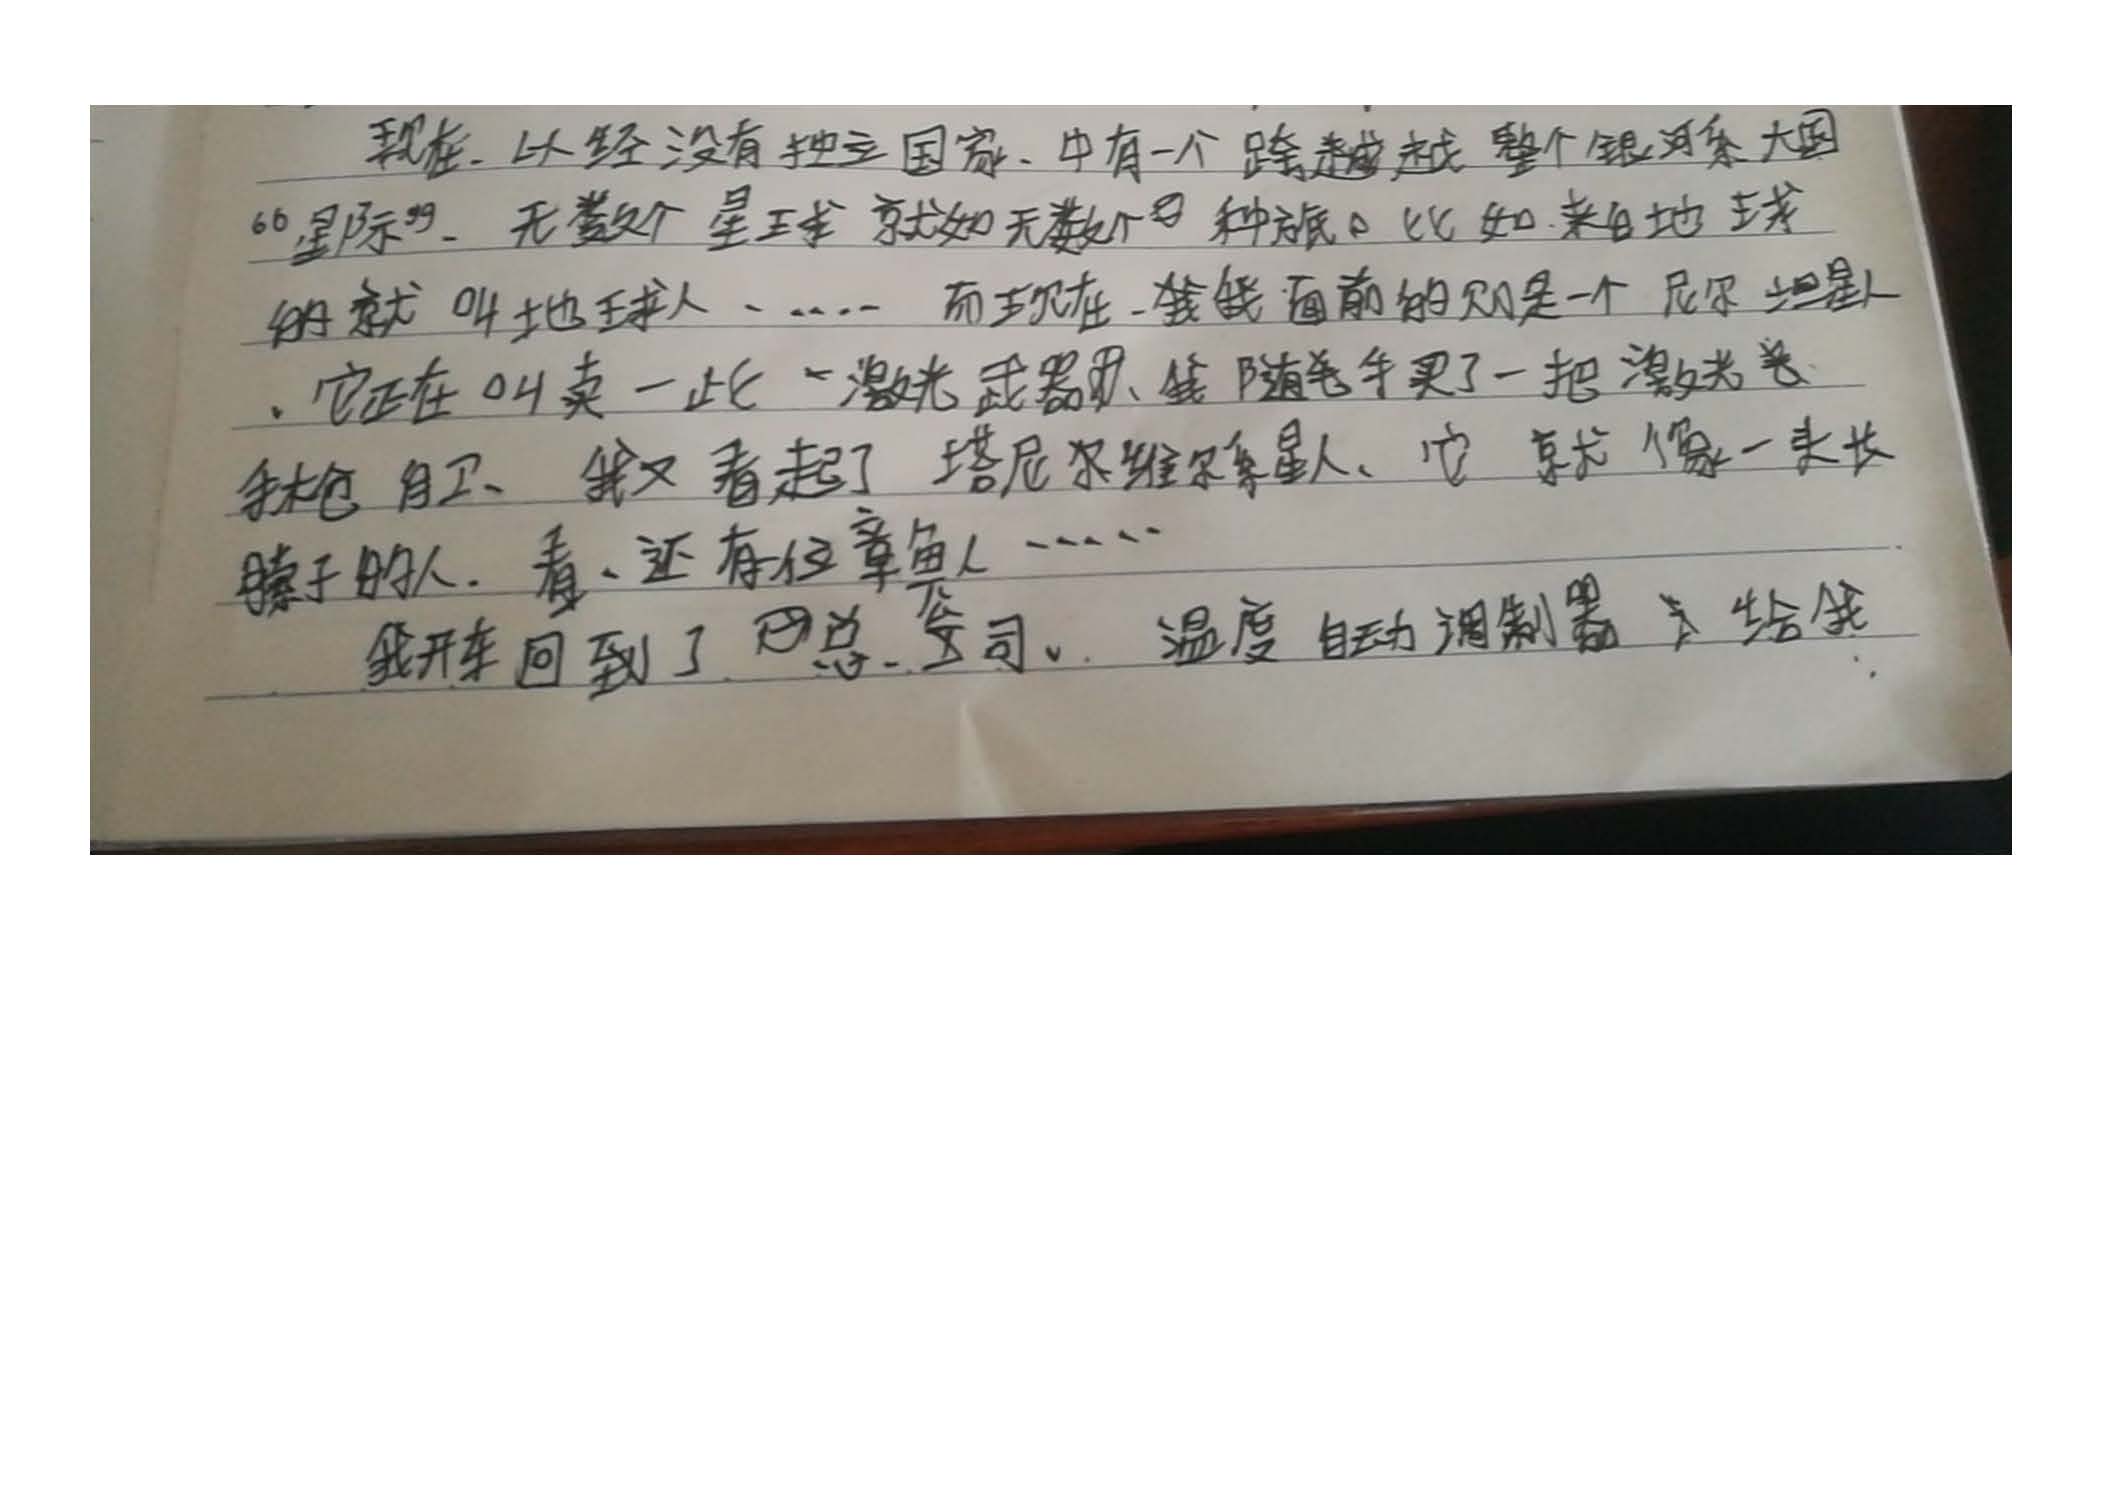 现在、以经没有独立国家、中有一个跨越整个银河系大国
“星际”、无数个星球就如无数个种族。比如来自地球
的就叫地球人……而现在、我面前的则是一个尼尔坦星人
、它正在叫卖一些激光武器、我随手买了一把激光
手枪自卫、我又看起了塔尼尔维尔系星人、它就像一头长
鼻子的人、看、还有位章鱼人……
我开车回到了总公司、温度自动调制器给我